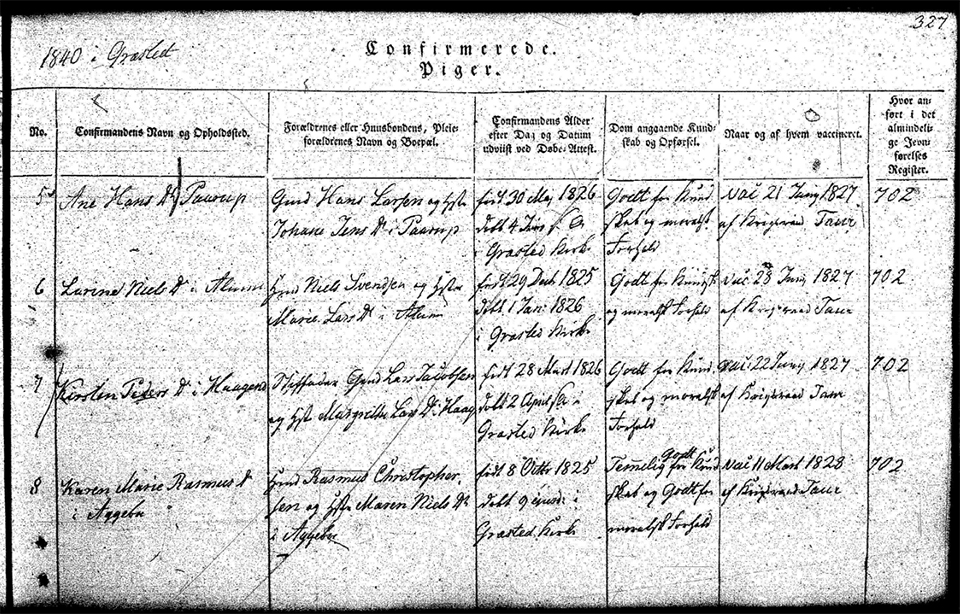 327
1840 i Græsted
Confirmerede.
Piger.
No.
Confirmandens Navn og Opholdssted.
Forældrenes eller Huusbondens, Pleie-
forældrenes Navn og Boepæl.
Confirmandens Alder
efter Dag og Datum
udviist ved Døbe-Attest.
Dom angaaende Kund-
skab og Opførsel.
Naar og af hvem vaccineret.
Hvor an-
ført i det
almindeli-
ge Jevn-
førelses
Register.
5
Ane Hans D Paarup
Gmd Hans Larsen og Hst
Johane Jens D i Paarup
født 30 Maj 1826
døbt 4 Juni
i Græsted Kirke
Godt for Kund
skab og moralsk
Forhold
Vac 21 Junij 1827
af Krigsraad
702
6
Larine Niels D i Alume
Gmd Niels Svendsen og Hst
Marie Lars D i Alume
født 29 Decb 1825
døbt 1 Jan 1826
i Græsted Kirke
Godt for Kundsk
og moralsk Forhold
Vac 23 Junij 1827
af Krigsraad
702
7
Kirsten Peders D i Haagend
Stiffader Gmd Lars Jacobsen
og Hst Margrethe Lars D i Haag
født 28 Mart 1826
døbt 2 April
Græsted Kirke
Godt for Kund
skab og moralsk
Forhold
Vac 22 Junij 1827
af Krigsraad
702
8
Karen Marie Rasmus D
i Aggebo
Gmd Rasmus Christopher
sen og Hst Maren Niels D
i Aggebo
født 8 Octbr 1825
døbt 9 i
Græsted Kirke
Temmelig Godt for Kund
skab og Godt for
moralsk Forhold
Vac 11 Mart 1828
af Krigsraad
702